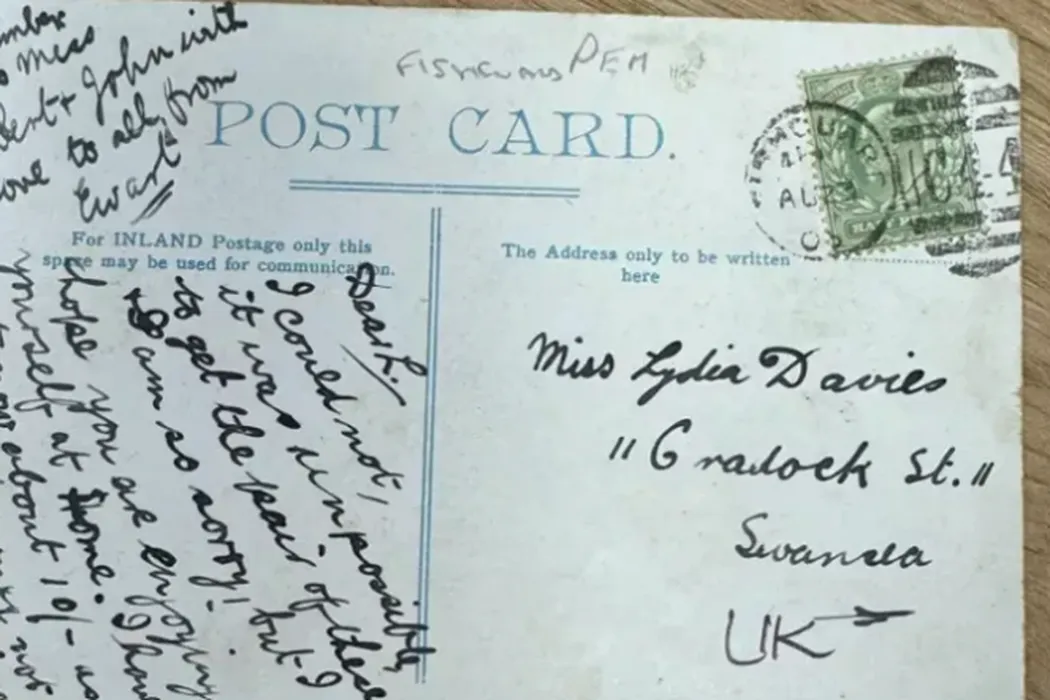 PEM
POST CARD.
For INLAND Postage only this
space may be used for communication.
The Address only to be written
here
Miss Lydia Davies
"Cradock St."
Swansea
UK
to Miss
& John with
love to all, from
Ewart
Dear L.,
I could not,
it was unpossible,
to get the pair of these
I am so sorry! but I
hope you are enjoying
yourself at home. I have
about 10/- us
not
AU